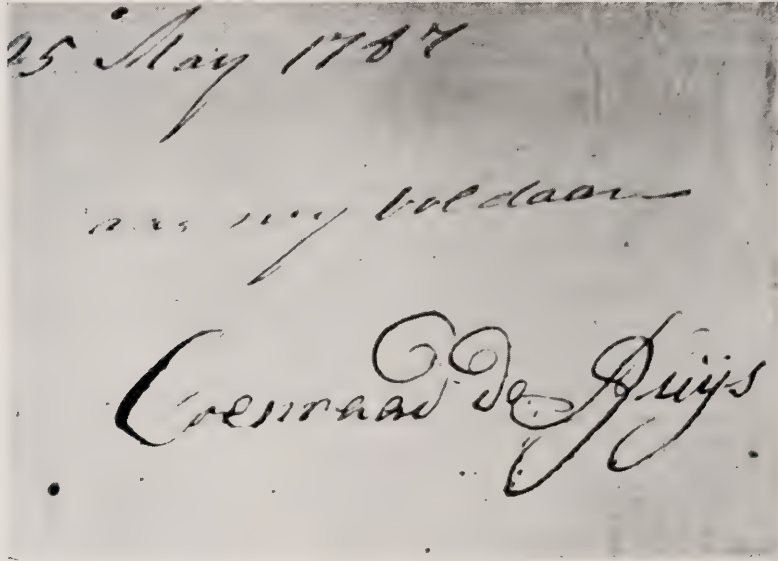 25 May 1787
my voldaan
Coenraad de Buijs